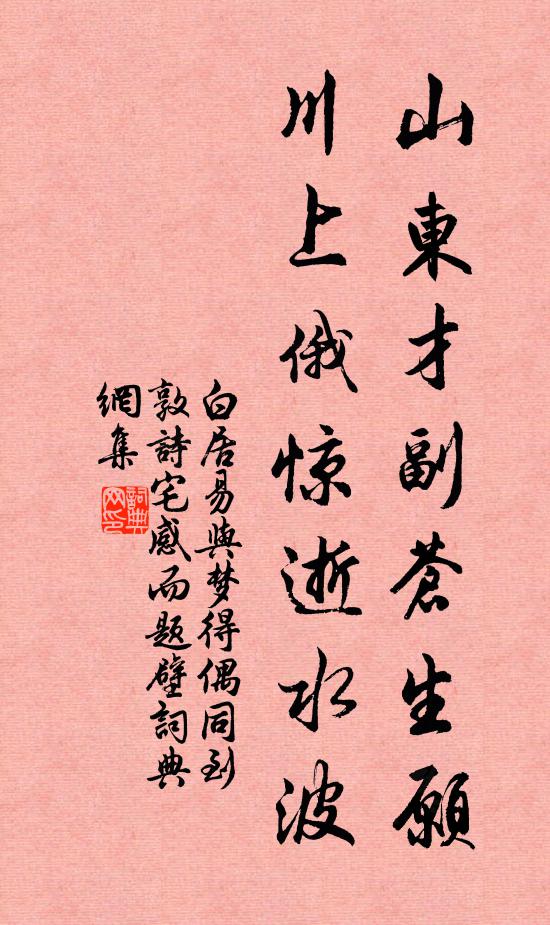 山東才副蒼生願
川上俄惊逝水波
白居易與梦得偶同到
敦詩宅感而題壁詞典
網集
詞典
网印